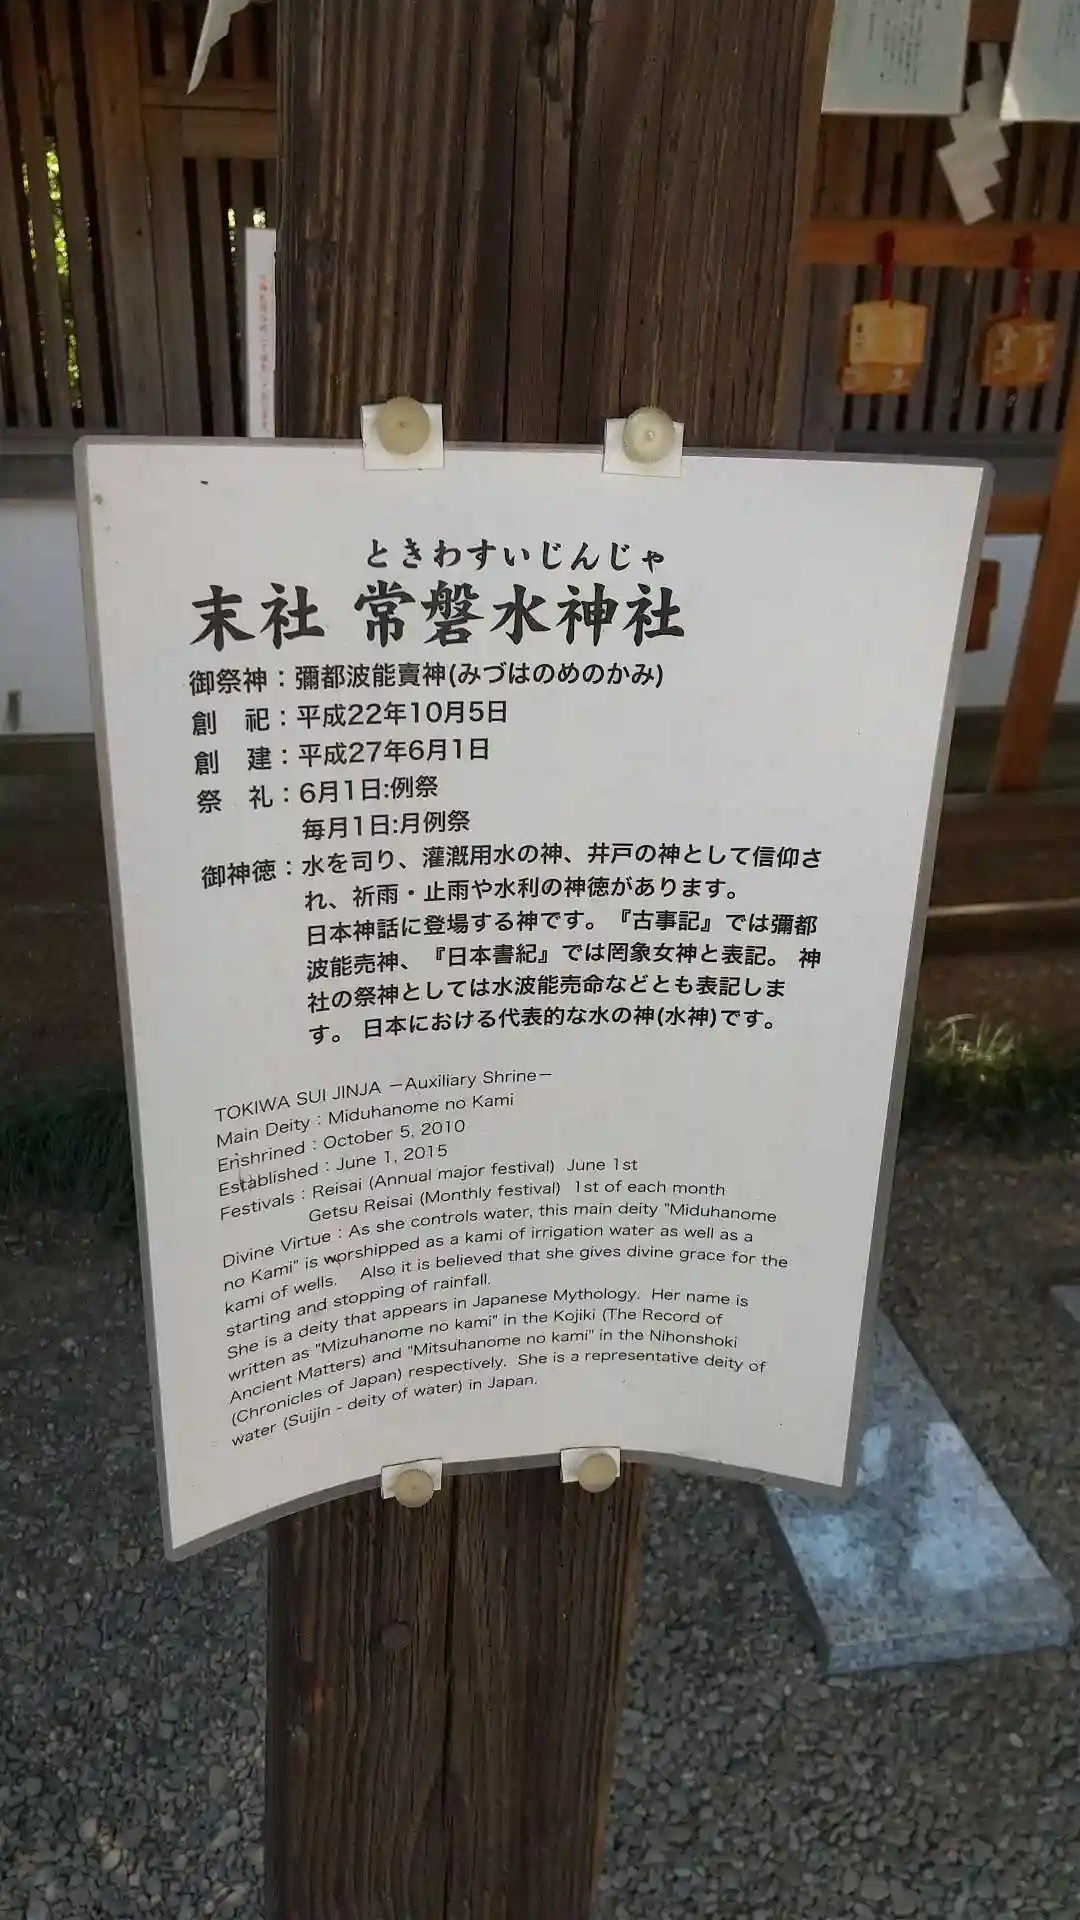 ときわすいじんじゃ
末社 常磐水神社
御祭神：彌都波能賣神(みづはのめのかみ)
創　祀：平成22年10月5日
創　建：平成27年6月1日
祭　礼：6月1日:例祭
毎月1日:月例祭
御神徳：水を司り、灌漑用水の神、井戸の神として信仰さ
れ、祈雨・止雨や水利の神徳があります。
日本神話に登場する神です。『古事記』では彌都
波能売神、『日本書紀』では罔象女神と表記。 神
社の祭神としては水波能売命などとも表記しま
す。 日本における代表的な水の神(水神)です。
TOKIWA SUI JINJA －Auxiliary Shrine－
Main Deity : Miduhanome no Kami
Enshrined : October 5, 2010
Established : June 1, 2015
Festivals : Reisai (Annual major festival) June 1st
Getsu Reisai (Monthly festival) 1st of each month
Divine Virtue : As she controls water, this main deity "Miduhanome
no Kami" is worshipped as a kami of irrigation water as well as a
kami of wells. Also it is believed that she gives divine grace for the
starting and stopping of rainfall.
She is a deity that appears in Japanese Mythology. Her name is
written as "Mizuhanome no kami" in the Kojiki (The Record of
Ancient Matters) and "Mitsuhanome no kami" in the Nihonshoki
(Chronicles of Japan) respectively. She is a representative deity of
water (Suijin - deity of water) in Japan.